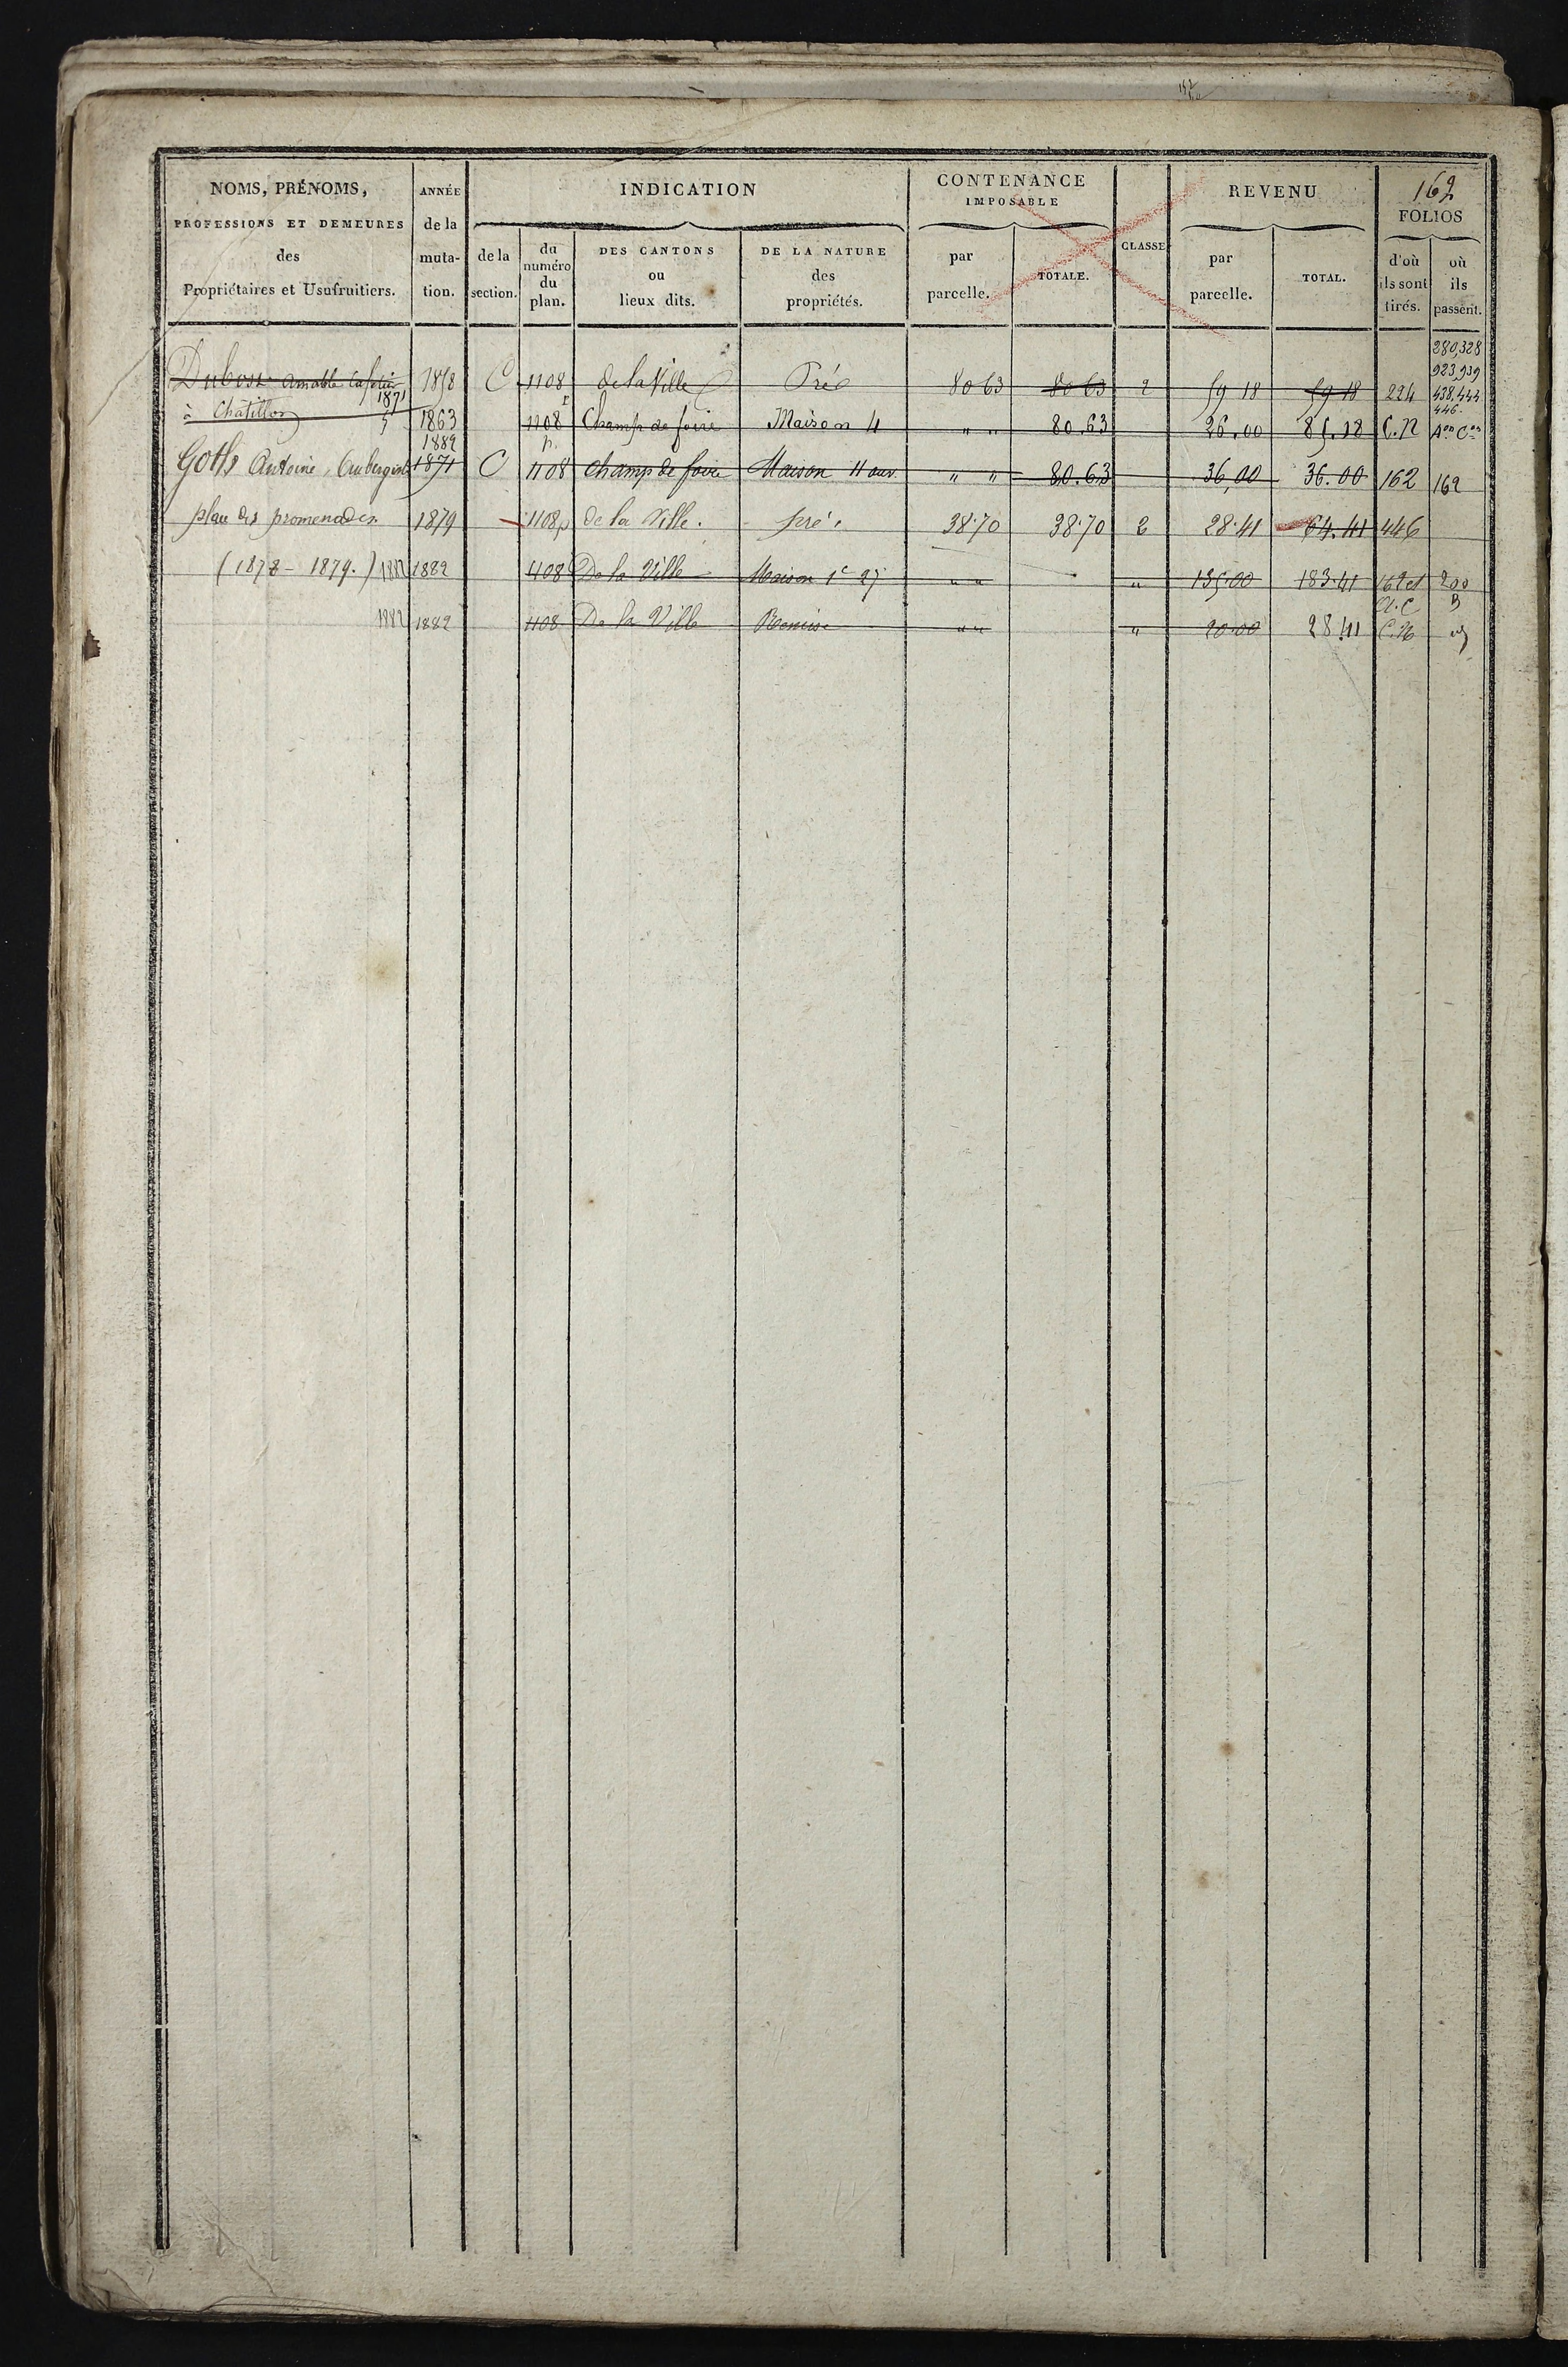 162
NOMS, PRÉNOMS, PROFESSIONS ET DEMEURES des Propriétaires et Usufruitiers.
ANNÉE de la muta- tion.
INDICATION
de la section.
du numéro du plan.
DES CANTONS ou lieux dits.
DE LA NATURE des propriétés.
CONTENANCE IMPOSABLE
par parcelle.
TOTALE.
CLASSE
REVENU
par parcelle.
TOTAL.
FOLIOS
d'où ils sont tirés.
où ils passent.
280,328
923,939
438,444
446
Dubost Amable Cafetier 1858 C 1108 de la Ville Pré 80 63 80 63 2 59 18 59 18 224
1871
à Chatillon 1863 1108 Champ de foire Maison 4 " " 80.63 26.00 85.18 C.N Aon Con
1882 p.
Goths Antoine, Aubergiste 1871 C 1108 Champ de foire Maison 4 ouv. " " 80.63 36,00 36.00 162 162
place des promenades 1879 1108p De la Ville. pré. 38.70 38.70 2 28.41 64.41 446
(1878 - 1879.) 1882 1882 1108 De la Ville Maison 1e 27 " " " 135.00 183.41 162 et 200
1882 1882 1108 De la Ville Remise " " " 20.00 28.41 C.N